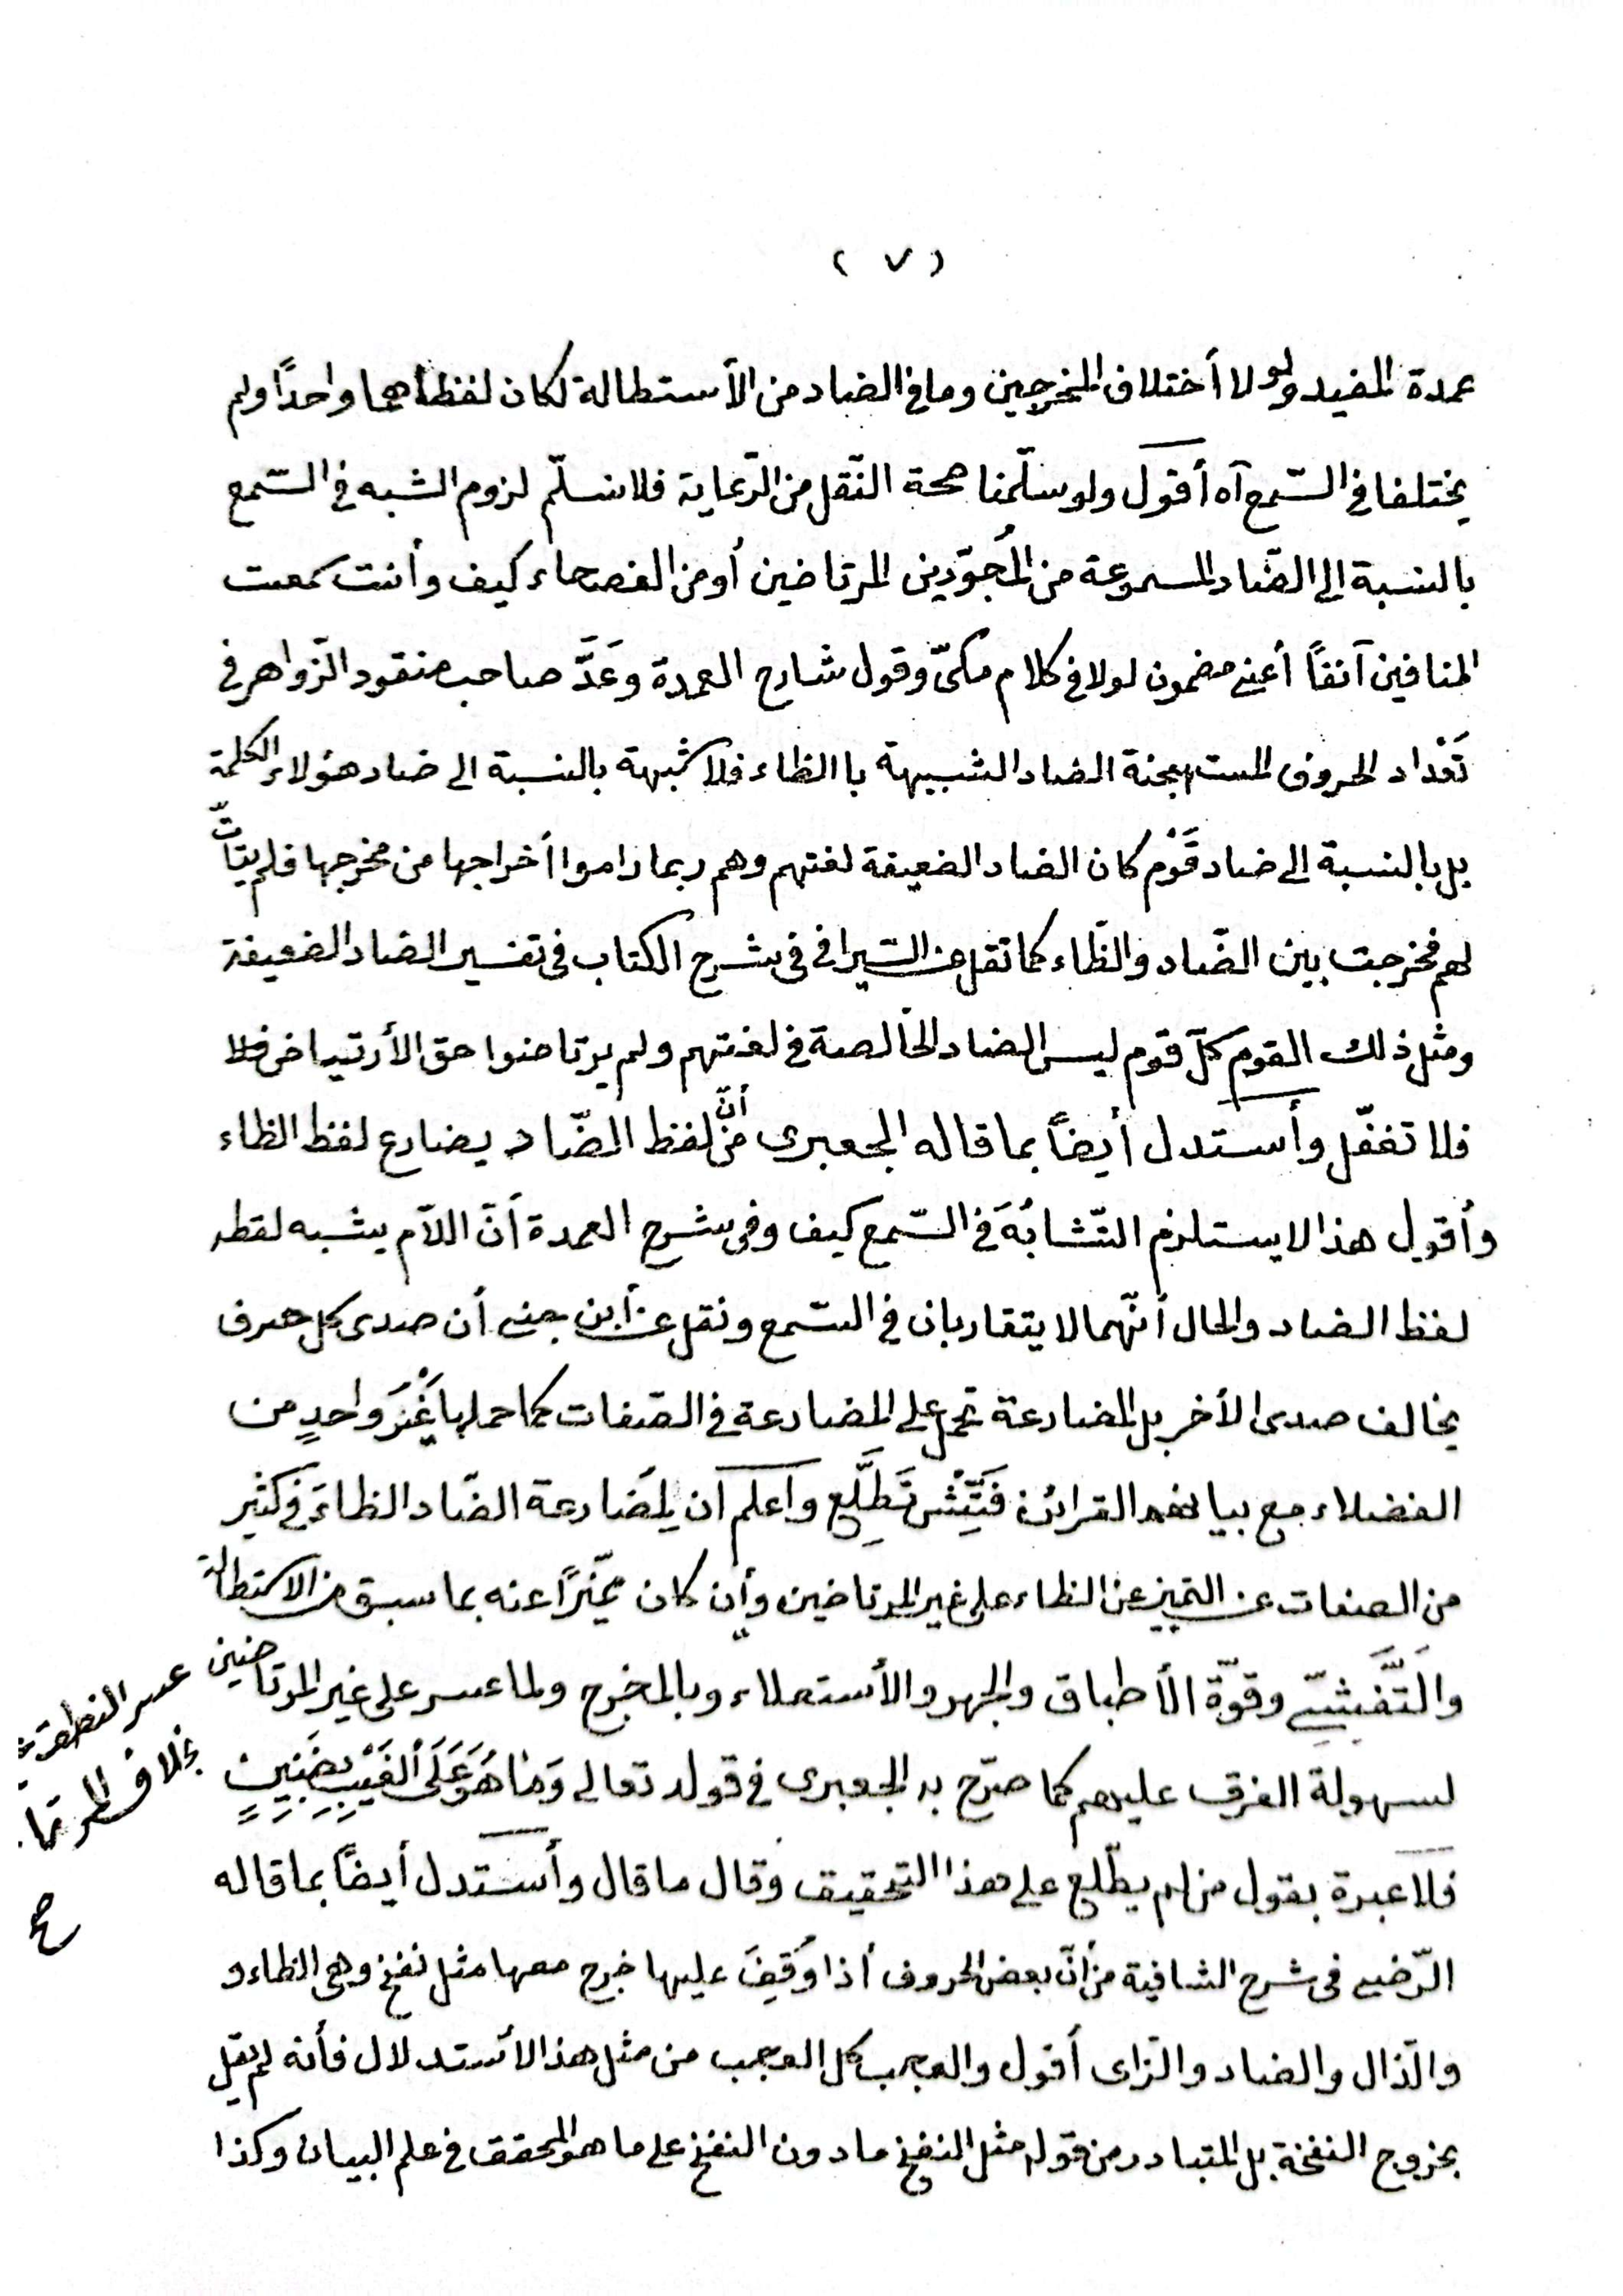 ( ٧ )
عمدة المفيد ولولا أختلاف المخرجين وما في الضاد من الأستطالة لكان لفظهما واحدًا ولم
يختلفا في السّمع آه أقول ولو سلّمنا صحة النّقل من الرّعاية فلا نسلّم لزوم الشبه في السّمع
بالنسبة إلى الضّاد المسموعة من المُجوّدين المرتاضين أو من الفصحاء كيف وأنت سمعت
المنافين آنفًا أعني مضمون لولا في كلام مكيّ وقول شارح العمدة وعَدَّ صاحب منقود الزّواهر في
تَعْداد الحروف المستهجنة الضاد الشبيهة با الظاء فلا شبهة بالنسبة الى ضاد هؤلاء الكلمة
بل بالنسبة إلى ضاد قَوْم كان الضاد الضعيفة لغتهم وهم ربما راموا أخراجها من مخرجها فلم يتأتّ
لهم فخرجت بين الضّاد والظّاء كما نقل عن السّيرافي في شرح الكتاب في تفسير الضاد الضعيفة
ومثل ذلك القوم كلّ قوم ليس الضاد الخالصة في لغتهم ولم يرتاضوا حق الأرتياض فلا
فلا تغفّل وأستدل أيضاً بما قاله الجعبرى من أنّ لفظ الضّاد يضارع لفظ الظاء
وأقول هذا لا يستلزم التّشابُهَ في السّمع كيف وفي شرح العمدة أنّ اللاّم يشبه لفظه
لفظ الضاد والحال أنّهما لا يتقاربان في السّمع ونقل عن أبن جني أن صدى كل حرف
يخالف صدى الأخر بل المضارعة تحمل على المضارعة في الصّفات كما حملها غَيْرُ واحدٍ من
الفضلاء مع بيا القرائن فَتِّشْ تَطَّلِع وأعلم أن لمضارعة الضّاد الظاءَ في كثير
من الصفات عن التميز عن الظاء على غير المرتاضين وأن كان مميّزًا عنه بما سبق من الاستطالة
والتَّفَشّي وقوّة الأطباق والجهر والأستعلاء وبالمخرج ولما عسر على غير المرتاضين
عسر النطق
بخلاف المرتا
صح
لسهولة الفرق عليهم كما صرّح به الجعبرى في قوله تعالى وَمَا هُوَ عَلَى الْغَيْبِ بِضَنِينٍ
فلا عبرة بقول من لم يطّلع على هذا التحقيق وقال ما قال وأستدل أيضاً بما قاله
الرّضي في شرح الشافية من أنّ بعض الحروف أذا وُقِفَ عليها خرج معها مثل نفخ وهي الظاء و
والذّال والضاد والزّاى أقول والعجب كل العجب من مثل هذا الأستدلال فأنه لم يقل
بخروج النفخة بل المتبادر من قوله مثل النفخ ما دون النفخ على ما هو المحقق في علم البيان وكذا